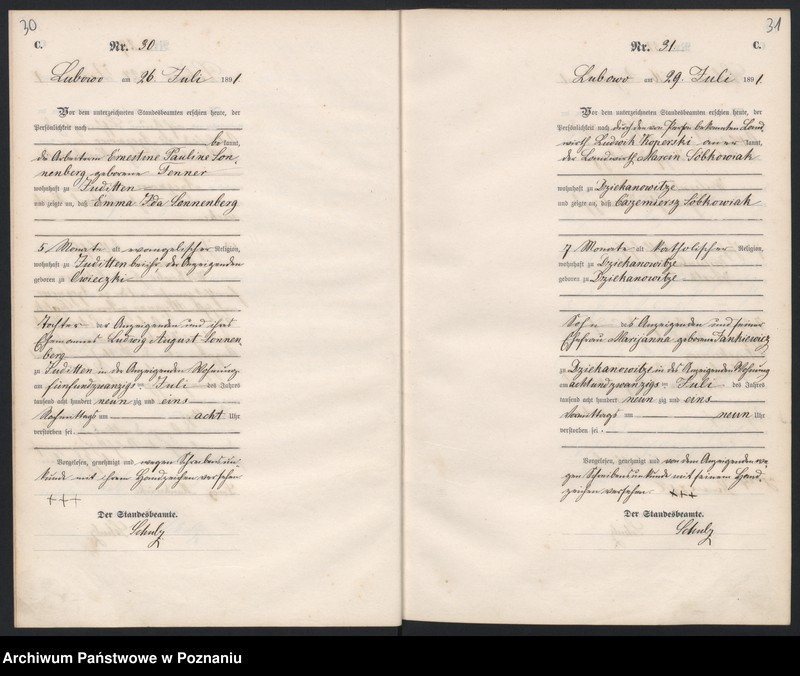 30
C.
Nr. 30
Lubowo am 26. Juli 1891.
Vor dem unterzeichneten Standesbeamten erschien heute, der
Persönlichkeit nach
bekannt,
die Arbeiterin Ernestine Pauline Son-
nenberg geborene Fenner
wohnhaft zu Juditten
und zeigte an, daß Emma Ida Sonnenberg
5 Monate alt evangelischer Religion,
wohnhaft zu Juditten bei ihr, der Anzeigenden
geboren zu Owieczki
Tochter der Anzeigenden und ihres
Ehemannes Ludwig August Sonnen
berg
zu Juditten in der Anzeigenden Wohnung
am fünfundzwanzigsten Juli des Jahres
tausend acht hundert neunzig und eins
Nachmittags um acht Uhr
verstorben sei.
Vorgelesen, genehmigt und wegen Schreibensun-
kunde mit ihrem Handzeichen versehen
+++
Der Standesbeamte.
Schulz
31
Nr. 31
C.
Lubowo am 29. Juli 1891.
Vor dem unterzeichneten Standesbeamten erschien heute, der
Persönlichkeit nach durch den von Person bekannten Land
wirth Ludwik Koperski anerkannt,
der Landwirth Marcin Sobkowiak
wohnhaft zu Dziekanowitze
und zeigte an, daß Cazemiersz Sobkowiak
7 Monate alt katholischer Religion,
wohnhaft zu Dziekanowitze
geboren zu Dziekanowitze
Sohn des Anzeigenden und seiner
Ehefrau Maryanna geborene Jankiewicz
zu Dziekanowitze in des Anzeigenden Wohnung
am achtundzwanzigsten Juli des Jahres
tausend acht hundert neunzig und eins
Vormittags um neun Uhr
verstorben sei.
Vorgelesen, genehmigt und von dem Anzeigenden we-
gen Schreibensunkunde mit seinem Hand-
zeichen versehen +++
Der Standesbeamte.
Schulz
Archiwum Państwowe w Poznaniu